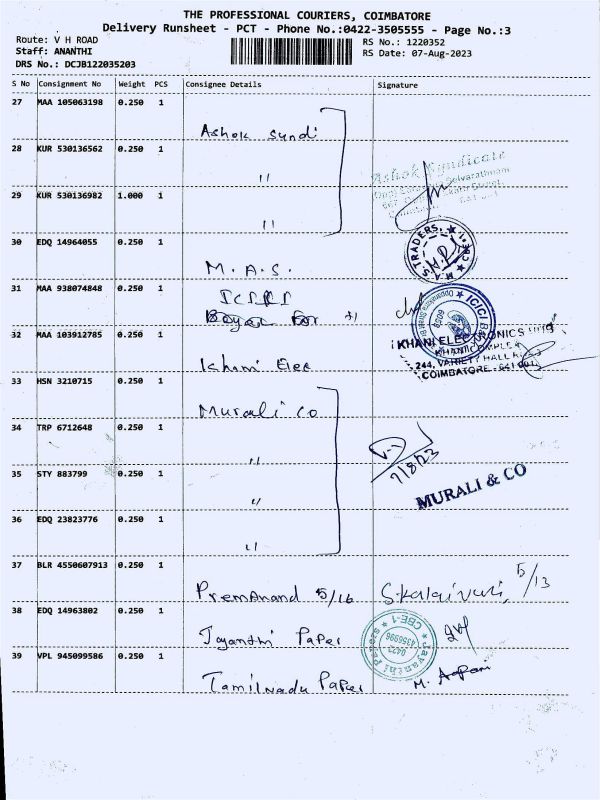 THE PROFESSIONAL COURIERS, COIMBATORE
Delivery Runsheet - PCT - Phone No.:0422-3505555 - Page No.:3
Route: V H ROAD
Staff: ANANTHI
DRS No.: DCJB122035203
RS No.: 1220352
RS Date: 07-Aug-2023
S No Consignment No Weight PCS Consignee Details Signature
27 MAA 105063198 0.250 1
Ashok Syndi
28 KUR 530136562 0.250 1
"
Ashok Syndicate
29 KUR 530136982 1.000 1
"
30 EDQ 14964055 0.250 1
M.A.S.
TRADERS
31 MAA 938074848 0.250 1
ICICI
ICICI
32 MAA 103912785 0.250 1
KHANI ELECTRONICS
KHANI COMPLEX
244, VARIETY HALL
COIMBATORE - 641 001
33 HSN 3210715 0.250 1
Murali Co
34 TRP 6712648 0.250 1
"
7/8/23
35 STY 883799 0.250 1
"
MURALI & CO
36 EDQ 23823776 0.250 1
"
37 BLR 4550607913 0.250 1
PremAnand 5/16 S.Kalaivani, 5/13
38 EDQ 14963802 0.250 1
Jayanthi Paper
Jayanthi CBE-1
0422
4356996
39 VPL 945099586 0.250 1
Tamilnadu Paper M.